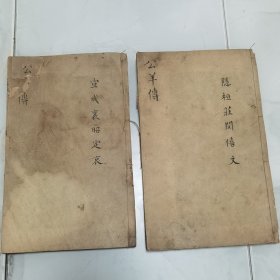 公羊傳
隱桓莊閔僖文
公羊傳
宣成襄昭定哀